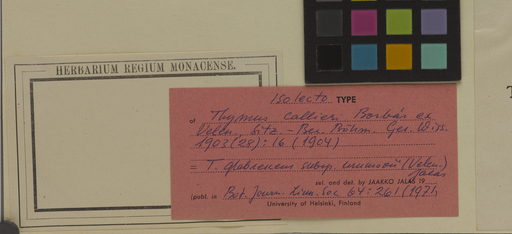 HERBARIUM REGIUM MONACENSE.
Isolecto TYPE
of Thymus callieri Borbás ex
Velen., Sitz.-Ber. Böhm. Ges. Wiss.
1903 (28): 16 (1904)
= T. glabrescens subsp. urumovii (Velen.)
Jalas
sel. and det. by JAAKKO JALAS 19
(publ. in Bot. Journ. Linn. Soc. 64: 261 (1971)
University of Helsinki, Finland